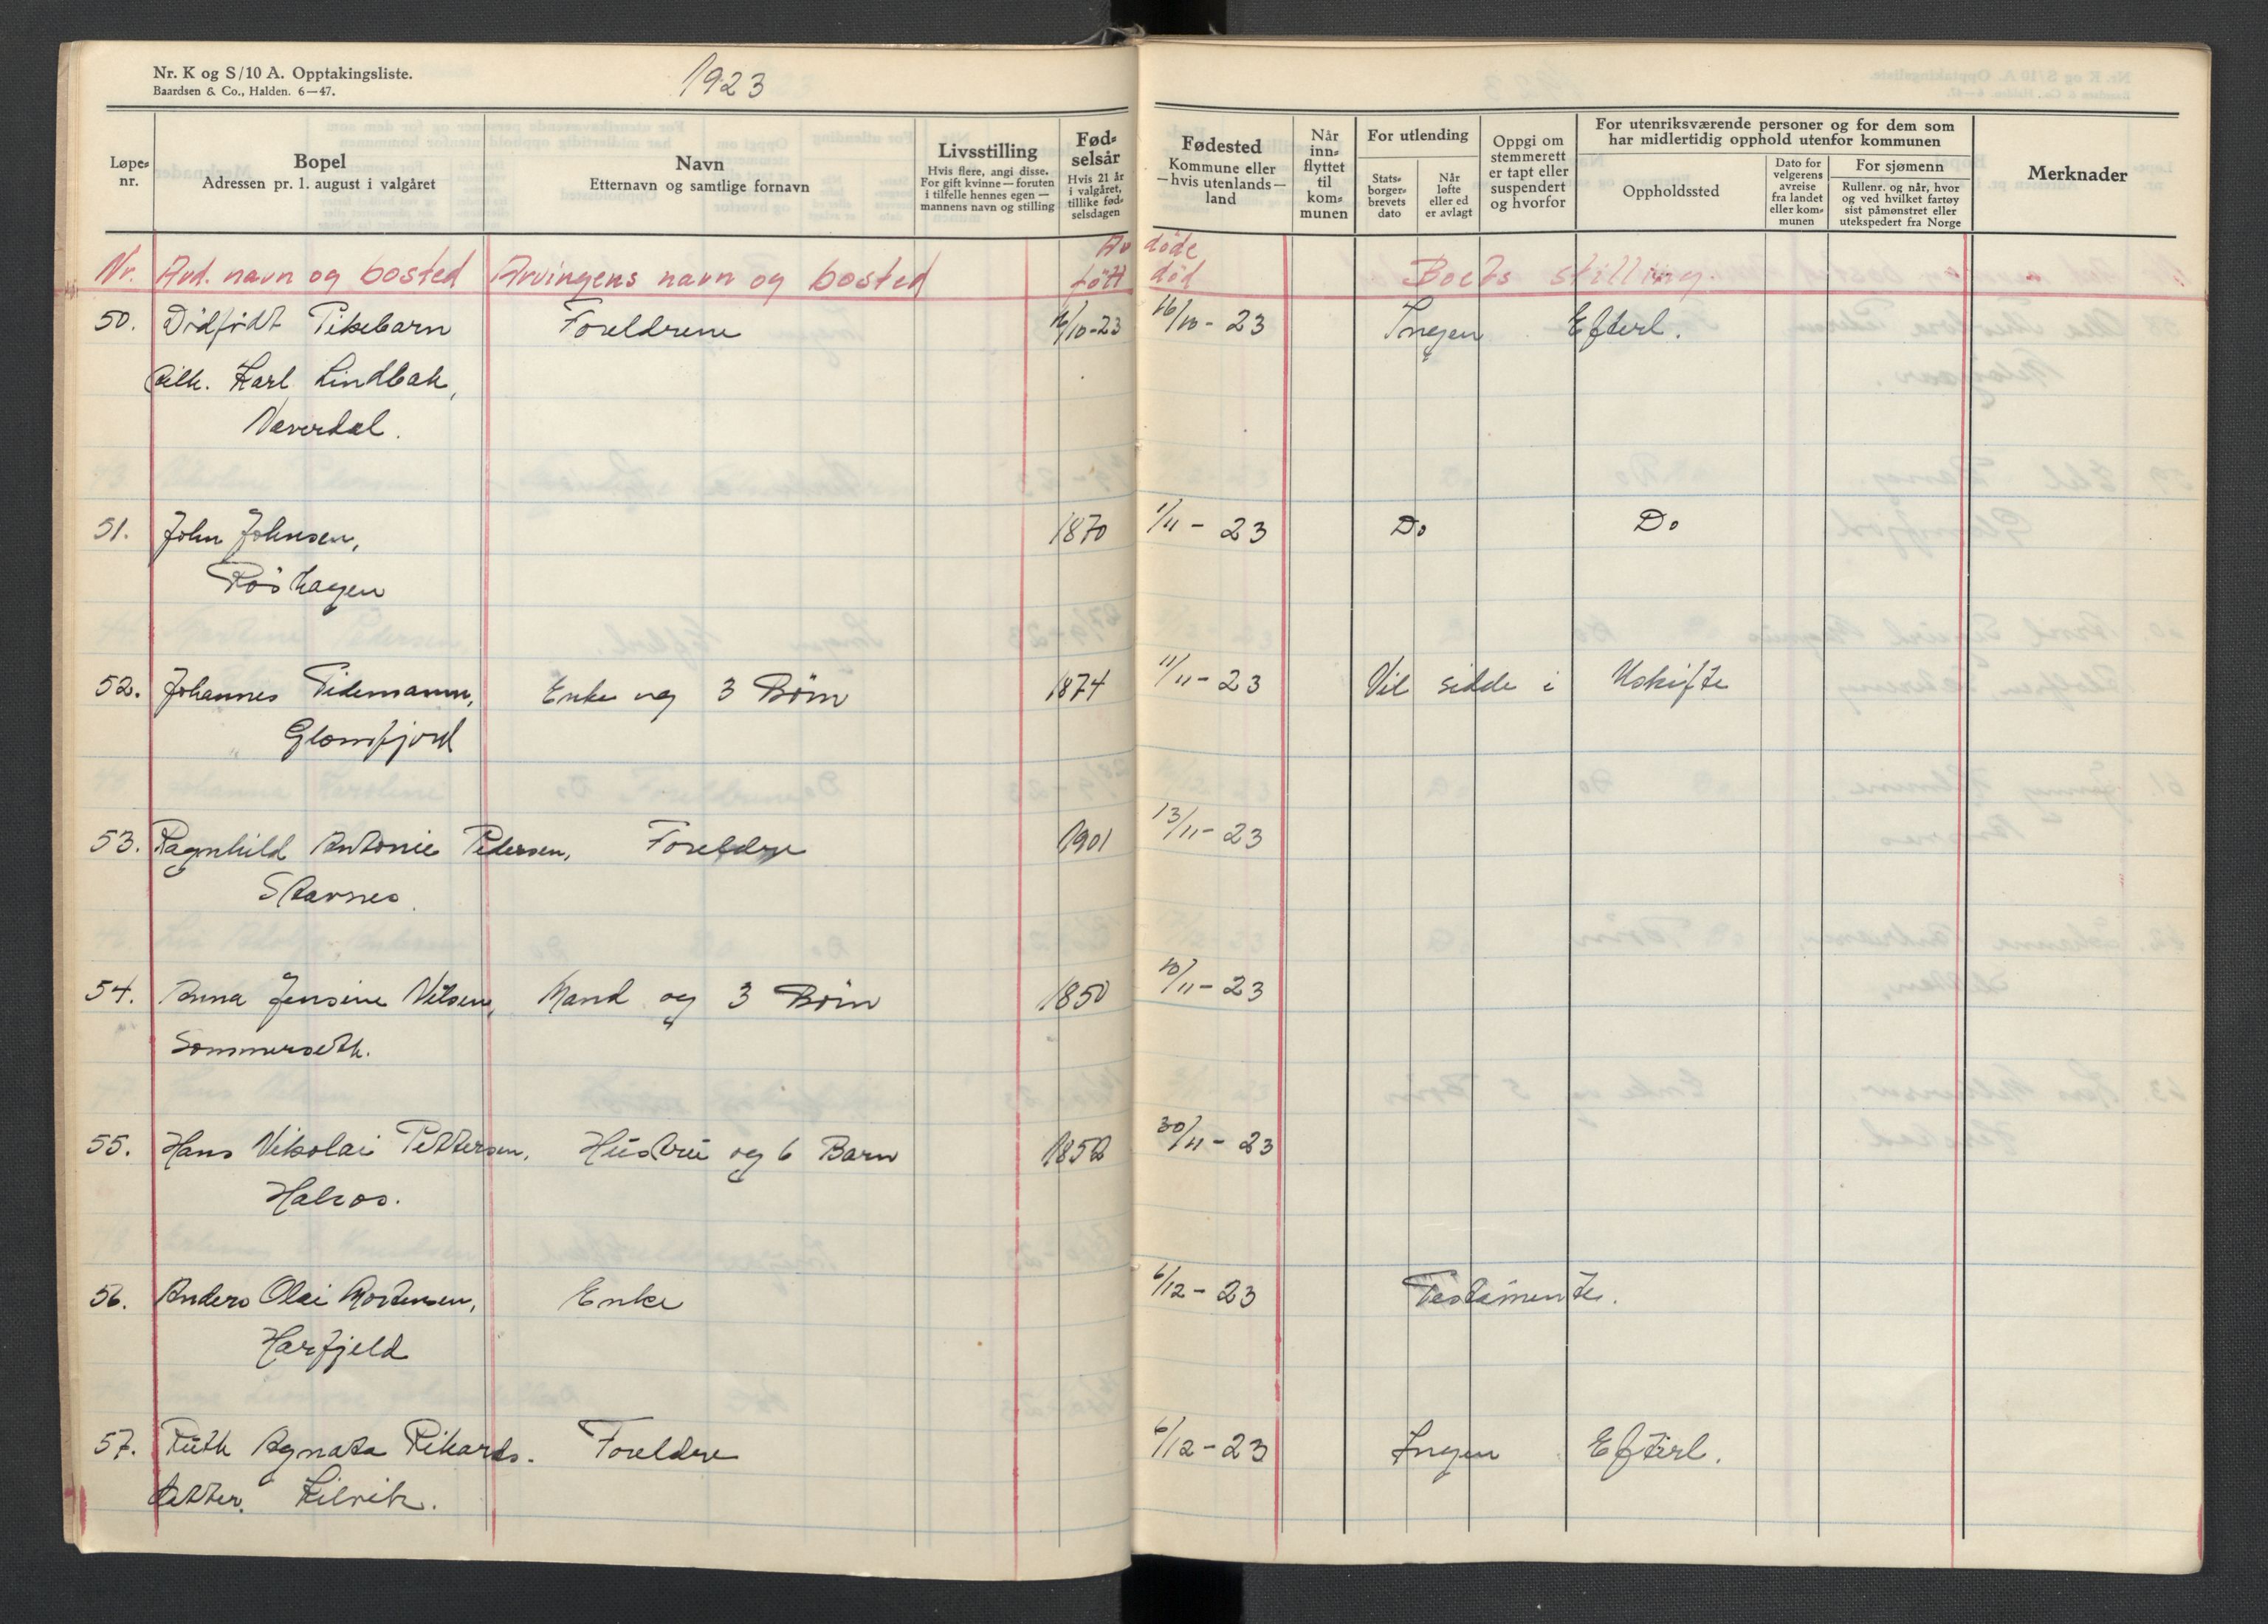 Nr. K og S/10 A. Opptakingsliste.
Baardsen & Co., Halden. 6—47.
1923
Løpe-nr.
Bopel
Adressen pr. 1. august i valgåret
Navn
Etternavn og samtlige fornavn
Livsstilling
Hvis flere, angi disse.
For gift kvinne — foruten
i tilfelle hennes egen —
mannens navn og stilling
Fød-
selsår
Hvis 21 år
i valgåret,
tillike fød-
selsdagen
Fødested
Kommune eller
— hvis utenlands —
land
Når
inn-
flyttet
til
kom-
munen
For utlending
Stats-
borger-
brevets
dato
Når
løfte
eller ed
er avlagt
Oppgi om
stemmerett
er tapt eller
suspendert
og hvorfor
For utenriksværende personer og for dem som
har midlertidig opphold utenfor kommunen
Oppholdssted
Dato for
velgerens
avreise
fra landet
eller kom-
munen
For sjømenn
Rullenr. og når, hvor
og ved hvilket fartøy
sist påmønstret eller
utekspedert fra Norge
Merknader
Av døde
Nr. Avd. navn og bosted Arvingens navn og bosted født død Boets stilling.
50. Dødfødt Pikebarn Foreldrene 16/10-23 16/10 - 23 Ingen Efterl.
Karl Lindbak,
Neverdal.
51. John Johnsen, 1870 1/11 - 23 Do Do
Röshagen
52. Johannes Tidemann, Enke og 3 Börn 1874 11/11 - 23 Vil sidde i Uskifte
Glomfjord
53. Ragnhild Antonie Pedersen, Foreldre 1901 13/11 - 23
Støvnes
54. Anna Jensine Nilsen, Mand og 3 Börn 1850 10/11 - 23
Sommerseth.
55. Hans Nikolai Pettersen, Hustru og 6 Barn 1852 30/11 - 23
Halsos.
56. Anders Olai Mortensen, Enke 6/12 - 23 Testamente.
Harfjeld
57. Ruth Agnata Rikards. Foreldre 6/12 - 23 Ingen Efterl.
datter. Kilvik.